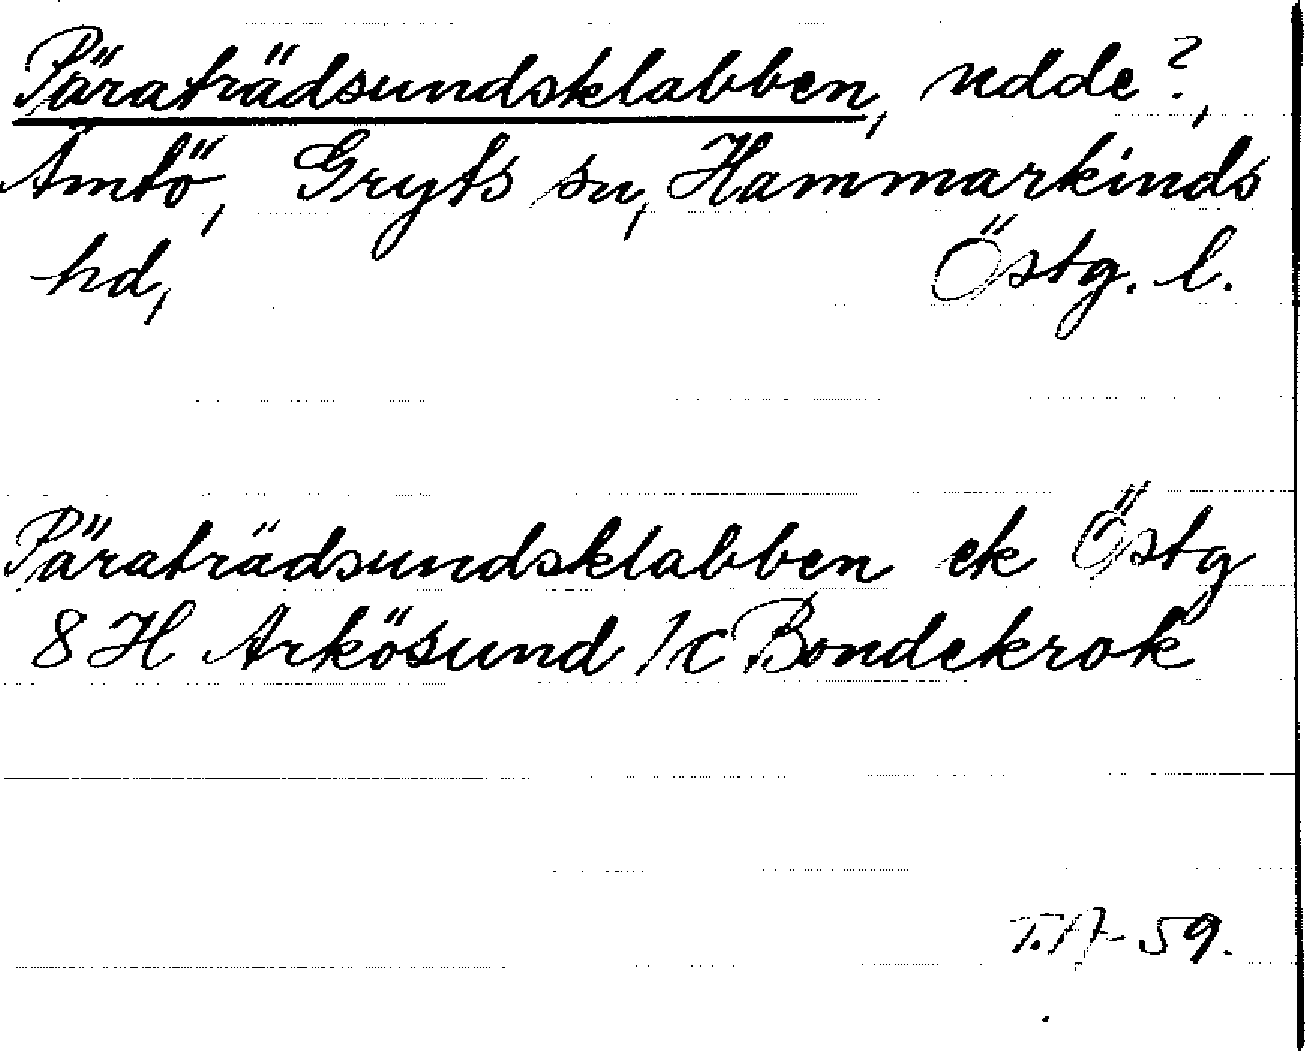 Päraträdsundsklabben, udde?,
Ämtö, Gryts sn, Hammarkinds
hd, Östg. l.
Päraträdsundsklabben ek Östg
8 H Arkösund 1c Bondekrok
T.A-59.